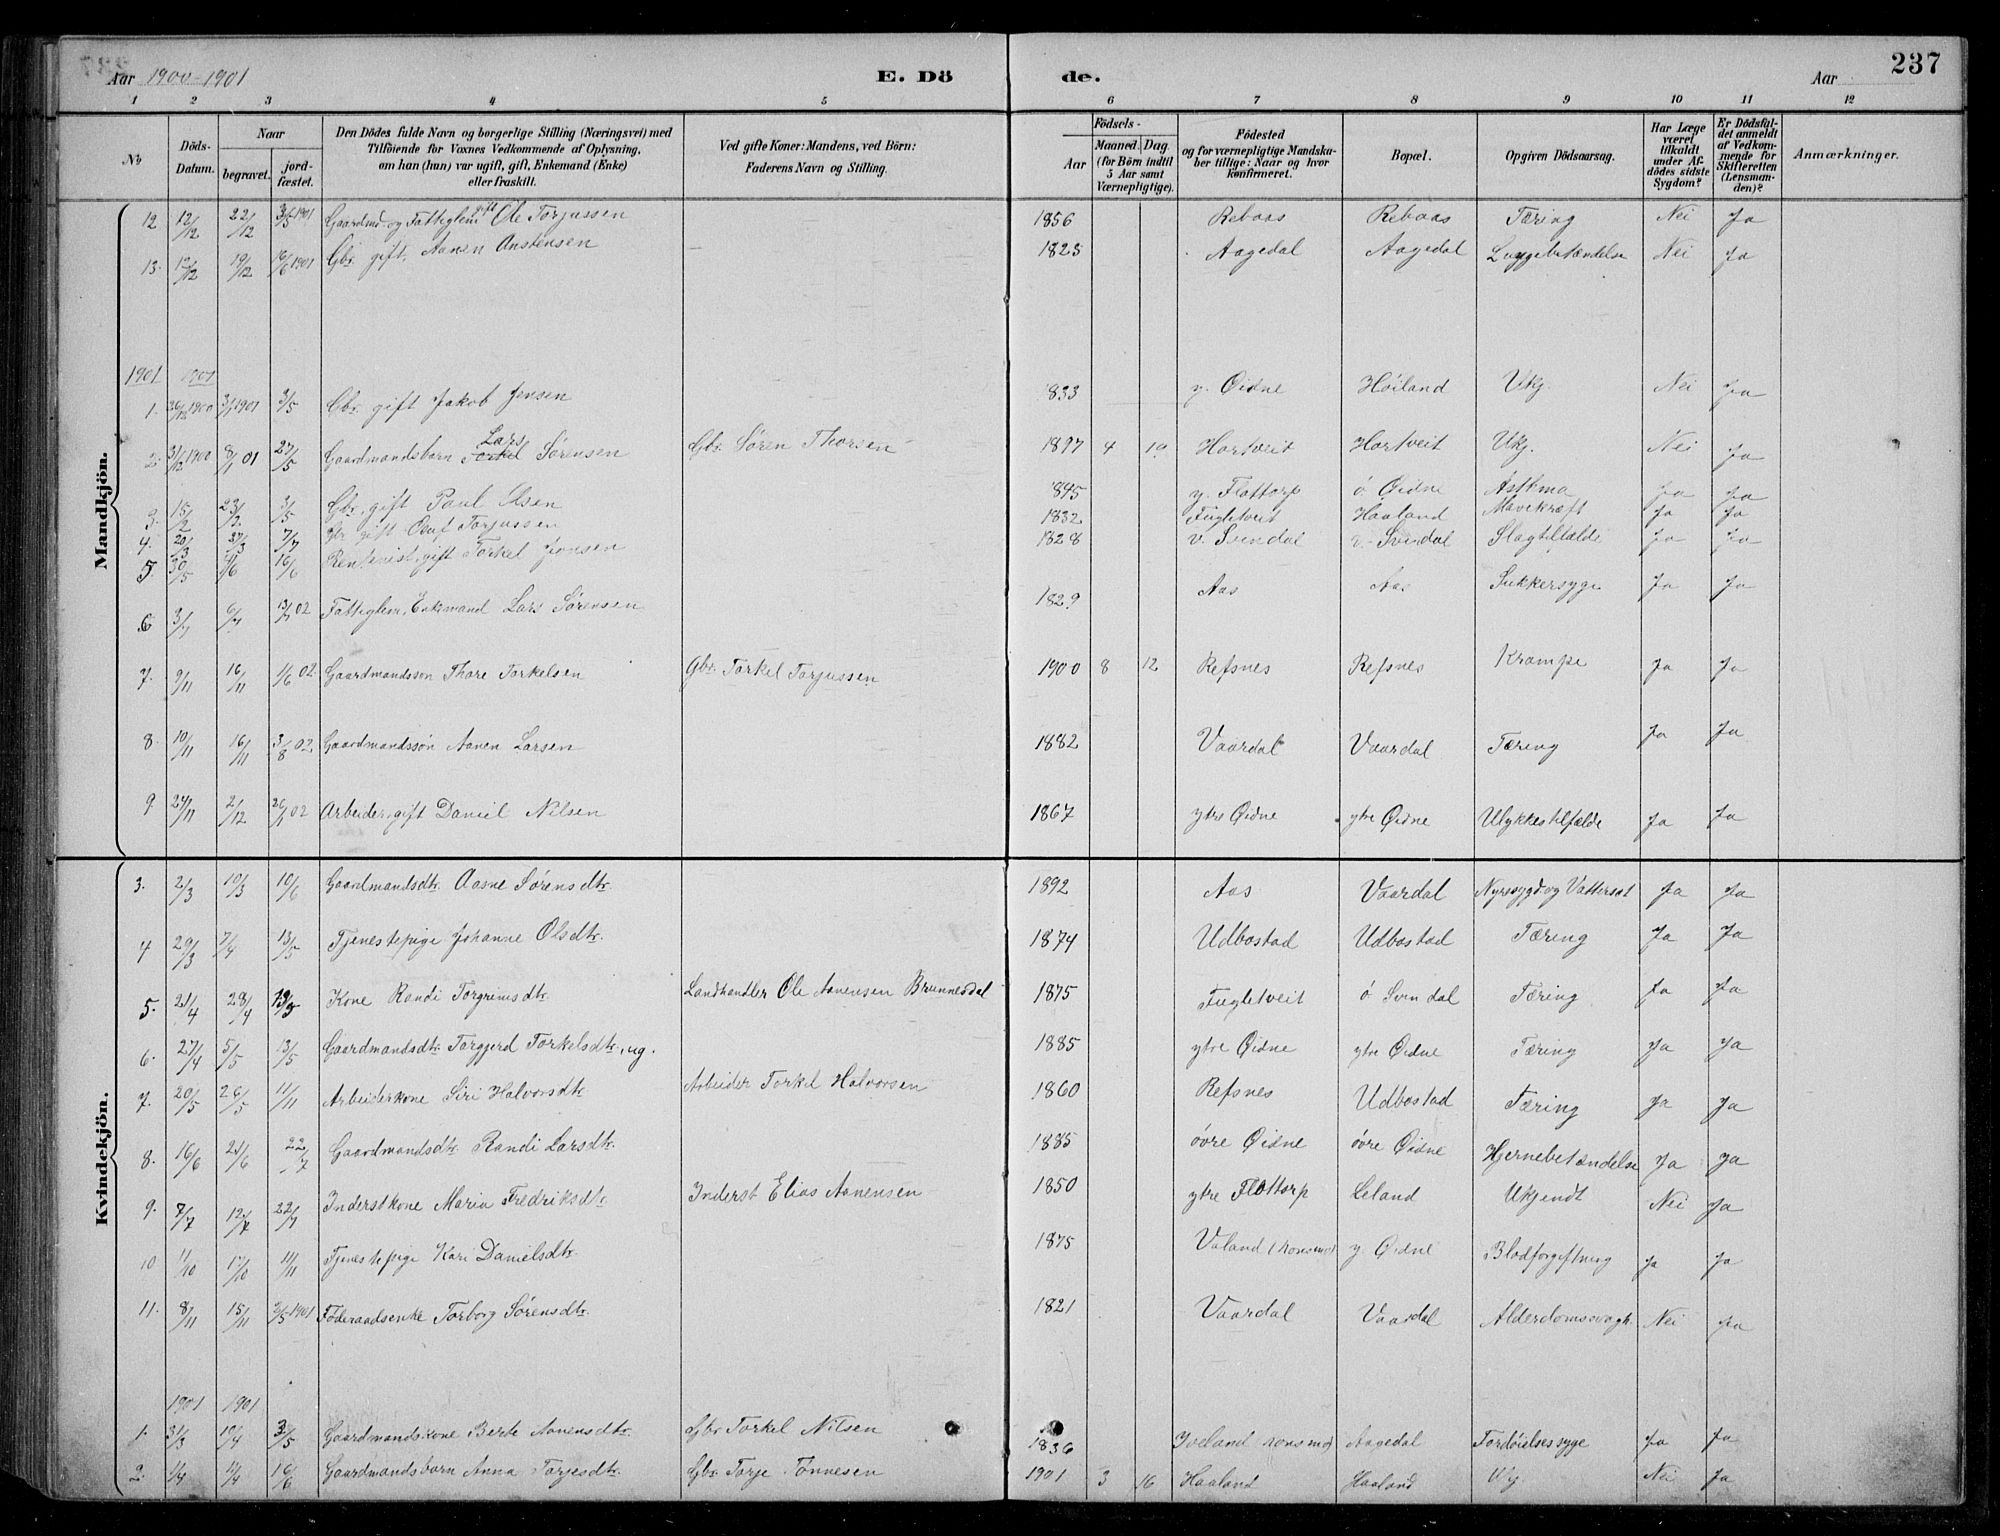 Aar 1900-1901 E. Dö de. Aar 237
1 2 3 4 5 6 7 8 9 10 11 12
No
Döds-Datum.
Naar
begravet.
jordfæstet.
Den Dödes fulde Navn og borgerlige Stilling (Næringsvei) med
Tilföiende for Voxnes Vedkommende af Oplysning,
om han (hun) var ugift, gift, Enkemand (Enke)
eller fraskilt.
Ved gifte Koner: Mandens, ved Börn:
Faderens Navn og Stilling.
Födsels-
Aar
Maaned. Dag.
(for Börn indtil
5 Aar samt
Værnepligtige).
Födested
og for værnepligtige Mandskaber tillige: Naar og hvor
konfirmeret.
Bopæl.
Opgiven Dödsaarsag.
Har Læge
været
tilkaldt
under Afdödes sidste
Sygdom?
Er Dödsfaldet anmeldt
af Vedkommende for
Skifteretten
(Lensmanden)?
Anmærkninger.
Mandkjön.
12 12/12 22/12 3/5 1901 Gaardmd. og Fattiglem gift Ole Torjussen 1856 Rebaas Rebaas Tæring Nei Ja
13. 12/12 19/12 16/6 1901 Gbr. gift, Aanen Anstensen 1825 Aagedal Aagedal Luggebetændelse Nei Ja
1901 1901
1. 26/12 1900 3/1 1901 3/5 Gbr. gift Jakob Jensen 1833 y. Øidne Høiland Ukj. Nei Ja
2. 31/12 1900 8/1 01 27/5 Gaardmandsbarn Torkel Lars Sørensen Gbr. Søren Thorsen 1897 4 19 Hortveit Hortveit Ukj. Nei Ja
3. 15/2 23/2 3/5 Gbr. gift Paul Olsen 1845 y. Flottorp ö Øidne Asthma Ja Ja
4. 20/3 27/3 7/7 Gbr. gift Oluf Torjussen 1832 Fugletveit Haaland Mavekræft Ja Ja
5. 30/5 7/6 16/6 Rentenist, gift Torkel Jonsen 1828 v. Svindal v. Svindal Slagtilfælde Ja Ja
6 3/7 6/7 13/7 02 Fattiglem, Enkemand Lars Sørensen 1829 Aas Aas Sukkersyge Ja Ja
7. 9/11 16/11 1/6 02 Gaardmandssøn Thore Torkelsen Gbr. Torkel Torjussen 1900 8 12 Refsnes Refsnes Krampe Ja Ja
8. 10/11 16/11 3/8 02 Gaardmandssøn Aanen Larsen 1882 Vaardal Vaardal Tæring Ja Ja
9. 24/11 2/12 26/1 02 Arbeider, gift Daniel Nilsen 1867 ytre Øidne ytre Øidne Ulykkestilfælde Ja Ja
Kvindekjön.
3. 2/3 10/3 10/6 Gaardmandsdtr. Aasne Sørensdtr. 1892 Aas Vaardal Nyresygd og Vattersot Ja Ja
4 29/3 7/4 13/5 Tjenestepige Johanne Olsdtr. 1874 Udbostad Udbostad Tæring Ja Ja
5. 21/4 28/4 13/5 Kone Randi Torgrimsdtr. Landhandler Ole Aanensen Brunnesdal 1875 Fugletveit ö Svindal Tæring Ja Ja
6. 27/4 5/5 13/5 Gaardmandsdtr. Torgjerd Torkelsdtr., ug. 1885 ytre Øidne ytre Øidne Tæring Ja Ja
7. 20/5 26/5 11/11 Arbeiderkone Siri Halvorsdtr. Arbeider Torkel Halvorsen 1860 Refsnes Udbostad Tæring Ja Ja
8. 16/6 21/6 22/7 Gaardmandsdtr. Randi Larsdtr. 1885 övre Øidne övre Øidne Hjernebetændelse Ja Ja
9. 7/7 12/7 22/7 Inderstkone Maria Fredriksdtr. Inderst Elias Aanensen 1850 ytre Flottorp Leland Ukjendt Nei Ja
10 11/10 17/10 11/11 Tjenestepige Kari Danielsdtr. 1875 Valand (Konsmo) y. Øidne Blodforgiftning Ja Ja
11. 8/11 15/11 3/5 1901 Føderaadsenke Torborg Sørensdtr. 1821 Vaardal Vaardal Alderdomssvagh. Nei Ja
1901 1901
1. 31/3 10/4 3/5 Gaardmandskone Berte Aanensdtr. Gbr. Torkel Nilsen 1836 Iveland Konsmo) Aagedal Fordøielsessyge Ja Ja
2. 1/4 11/4 16/6 Gaardmandsbarn Anna Torjesdtr. Gbr. Torje Tønnesen 1901 3 16 Haaland Haaland Uj. Nei Ja